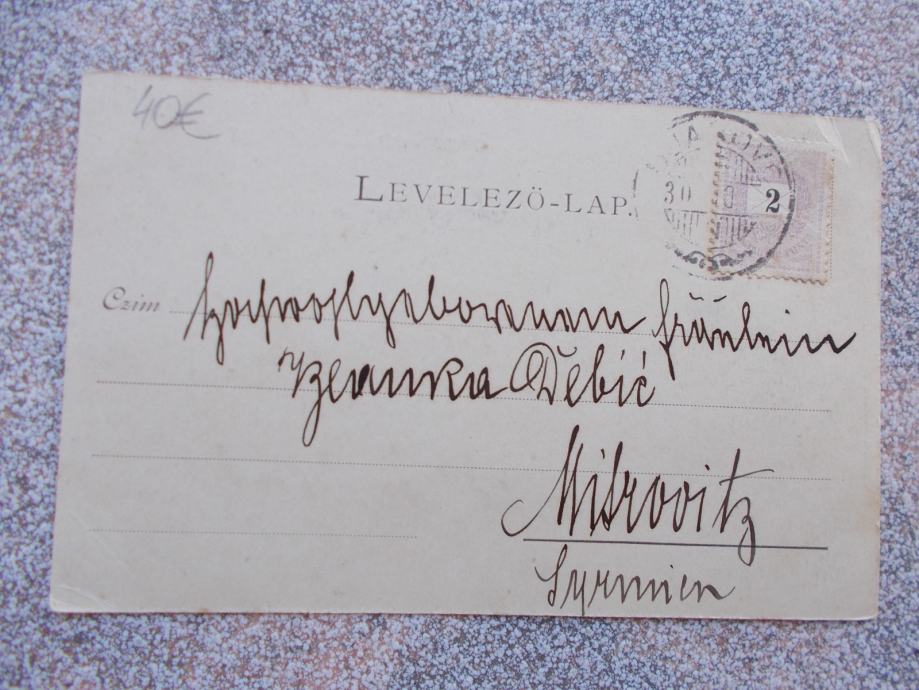 40€
LEVELEZŐ-LAP.
30
2
Czim Hochwohlgeborenem Fräulein
Zlanka Debić
Mitrovitz
Syrmien